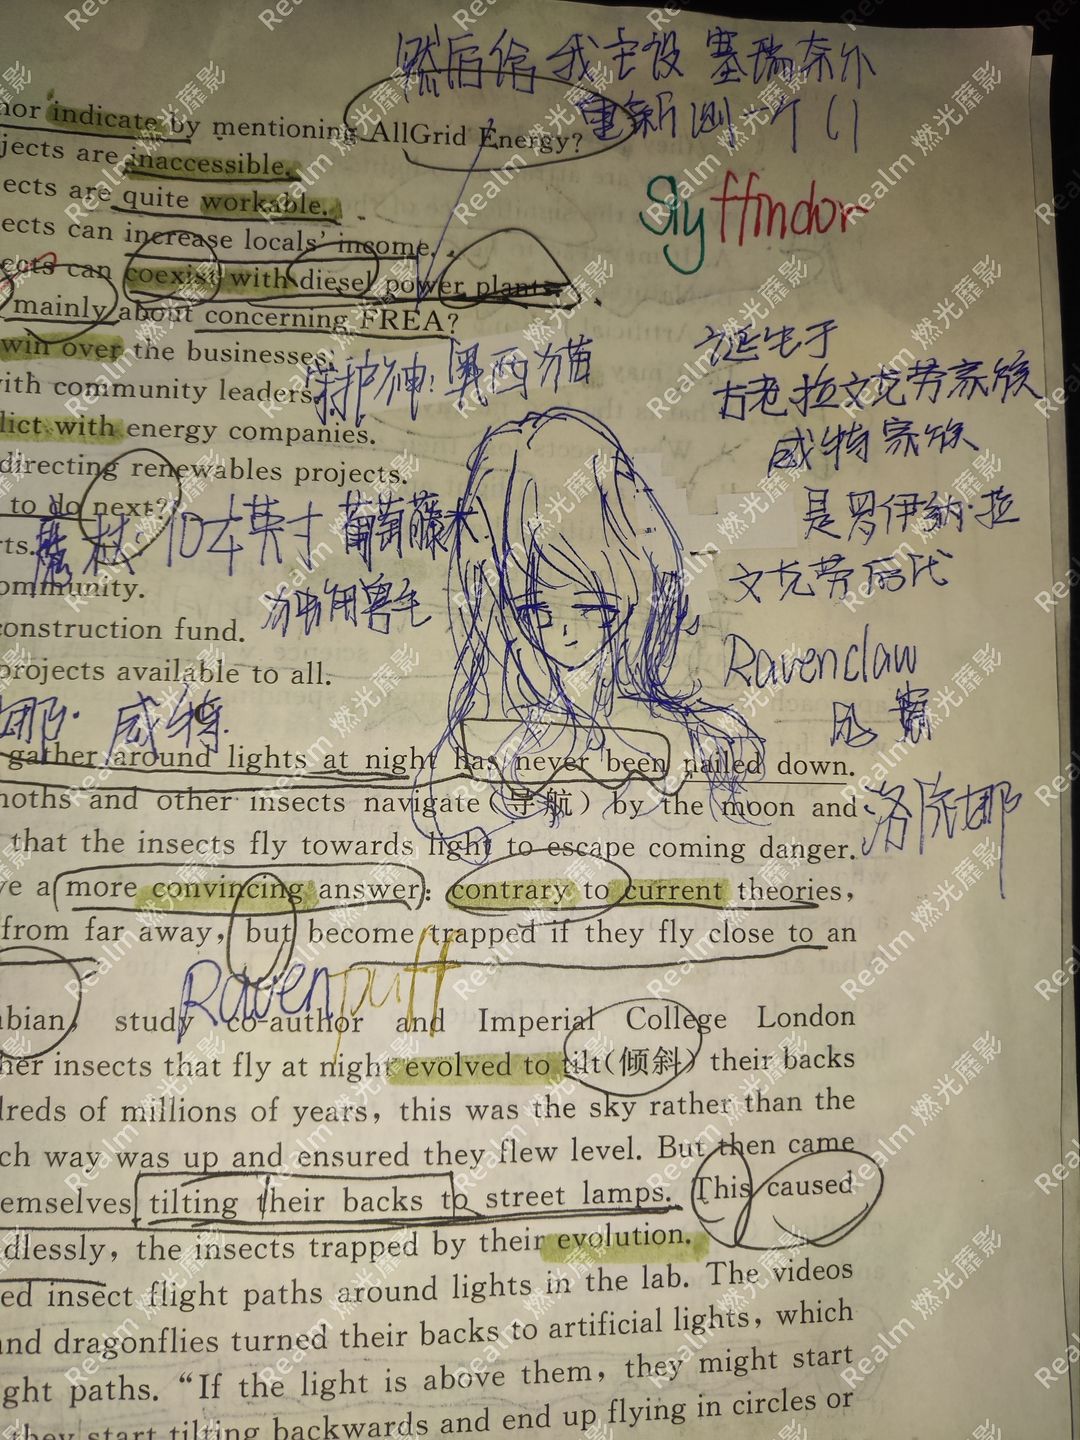 然后给我主设 塞瑞奈尔
重新测一个()
nor indicate by mentioning AllGrid Energy?
jects are inaccessible.
ects are quite workable.
Slyffindor
ects can increase locals' income.
ects can coexist with diesel power plants.
mainly about concerning FREA?
win over the businesses.
诞生于
守护神:奥西猫
with community leaders.
古老拉文克劳家族
lict with energy companies.
威特家族
directing renewables projects.
to do next?
是罗伊纳·拉
魔杖:10本英寸 葡萄藤木
rts.
文克劳后代
ommunity.
独角兽毛
construction fund.
Ravenclaw
projects available to all.
娜·威特
gather around lights at night has never been nailed down.
moths and other insects navigate(导航) by the moon and
洛依娜
that the insects fly towards light to escape coming danger.
ve a more convincing answer: contrary to current theories,
from far away, but become trapped if they fly close to an
Ravenpuff
bian, study co-author and Imperial College London
her insects that fly at night evolved to tilt(倾斜) their backs
dreds of millions of years, this was the sky rather than the
ch way was up and ensured they flew level. But then came
emselves tilting their backs to street lamps. This caused
dlessly, the insects trapped by their evolution.
ed insect flight paths around lights in the lab. The videos
and dragonflies turned their backs to artificial lights, which
ght paths. “If the light is above them, they might start
they start tilting backwards and end up flying in circles or
Realm 燃光靡影